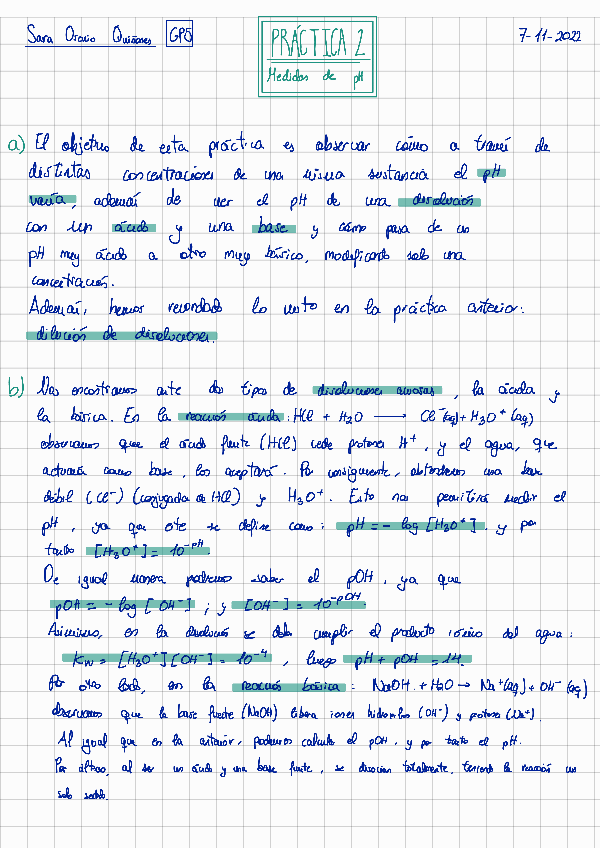 Sara Orario Quiñones GP5
PRÁCTICA 2
Medidas de pH
7-11-2022
a) El objetivo de esta práctica es observar cómo a través de
distintas concentraciones de una misma sustancia el pH
varía, además de ver el pH de una disolución
con un ácido y una base y cómo pasa de un
pH muy ácido a otro muy básico, modificando solo una
concentración.
Además, hemos recordado lo visto en la práctica anterior:
dilución de disoluciones.
b) Nos encontramos ante dos tipos de disoluciones acuosas, la ácida y
la básica. En la reacción ácida: HCl + H2O → Cl⁻(aq) + H3O⁺ (aq)
observamos que el ácido fuerte (HCl) cede protones H⁺, y el agua, que
actuaría como base, los aceptará. Por consiguiente, obtendremos una base
débil (Cl⁻) (conjugada de HCl) y H3O⁺. Esto nos permitirá medir el
pH, ya que este se define como: pH = - log [H3O⁺]. y por
tanto [H3O⁺] = 10⁻ᵖᴴ.
De igual manera podremos saber el pOH, ya que
pOH = - log [OH⁻] ; y [OH⁻] = 10⁻ᵖᴼᴴ.
Asimismo, en la disolución se debe cumplir el producto iónico del agua:
Kw = [H3O⁺][OH⁻] = 10⁻⁴, luego pH + pOH = 14.
Por otro lado, en la reacción básica: NaOH + H2O → Na⁺(aq) + OH⁻(aq)
observamos que la base fuerte (NaOH) libera iones hidroxilos (OH⁻) y protones (Na⁺).
Al igual que en la anterior, podemos calcular el pOH, y por tanto el pH.
Por último, al ser un ácido y una base fuerte, se disocian totalmente, teniendo la reacción un
solo sentido.